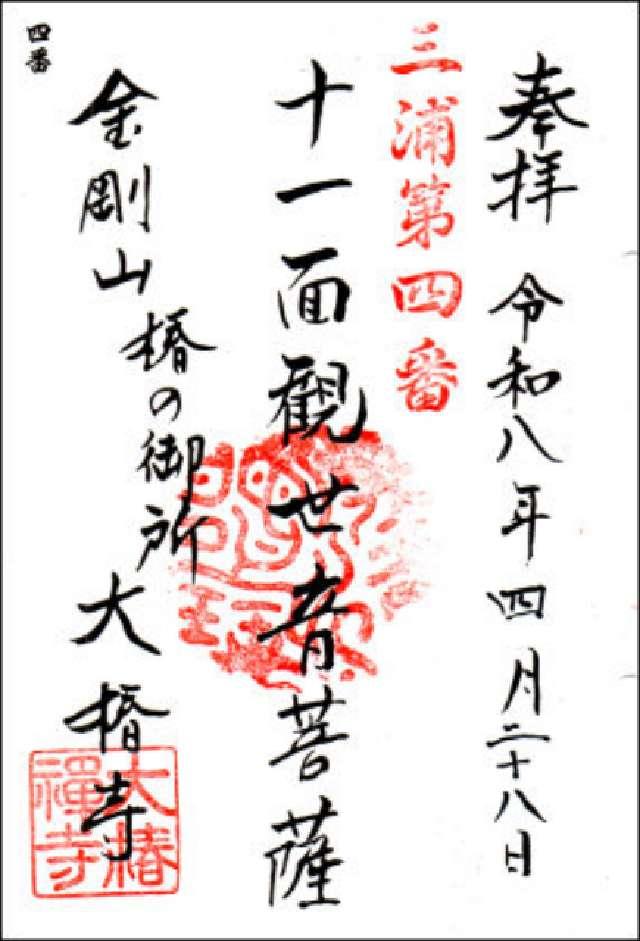 奉拝 令和八年四月二十八日
三浦第四番
十一面観世音菩薩
金剛山 椿の御所 大椿寺
大椿禅寺
四番